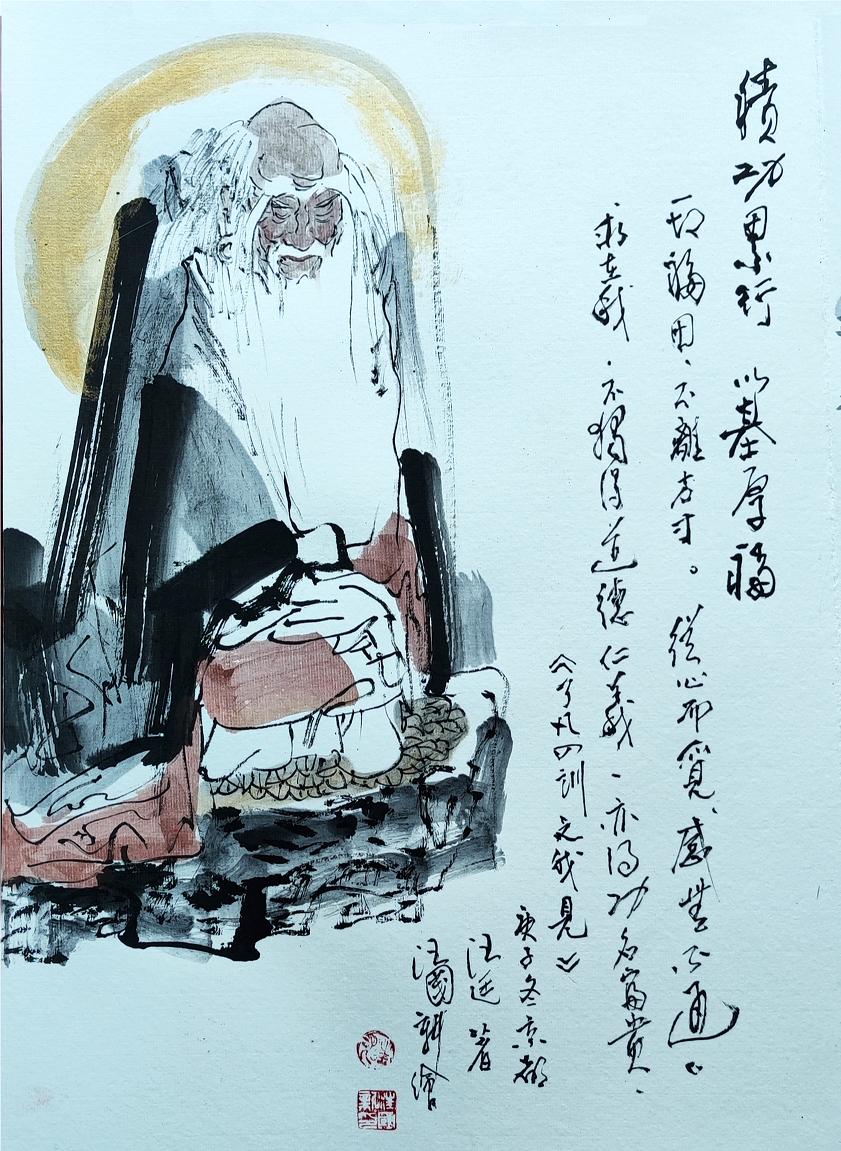 積功累行 以基厚福
一切福田、不離方寸。從心而覓,感無不通。
求在我,不獨得道德仁義、亦得功名富貴、
《了凡四訓之我見》
庚子冬京都
汪廷 著
汪國新 繪
汪國新印